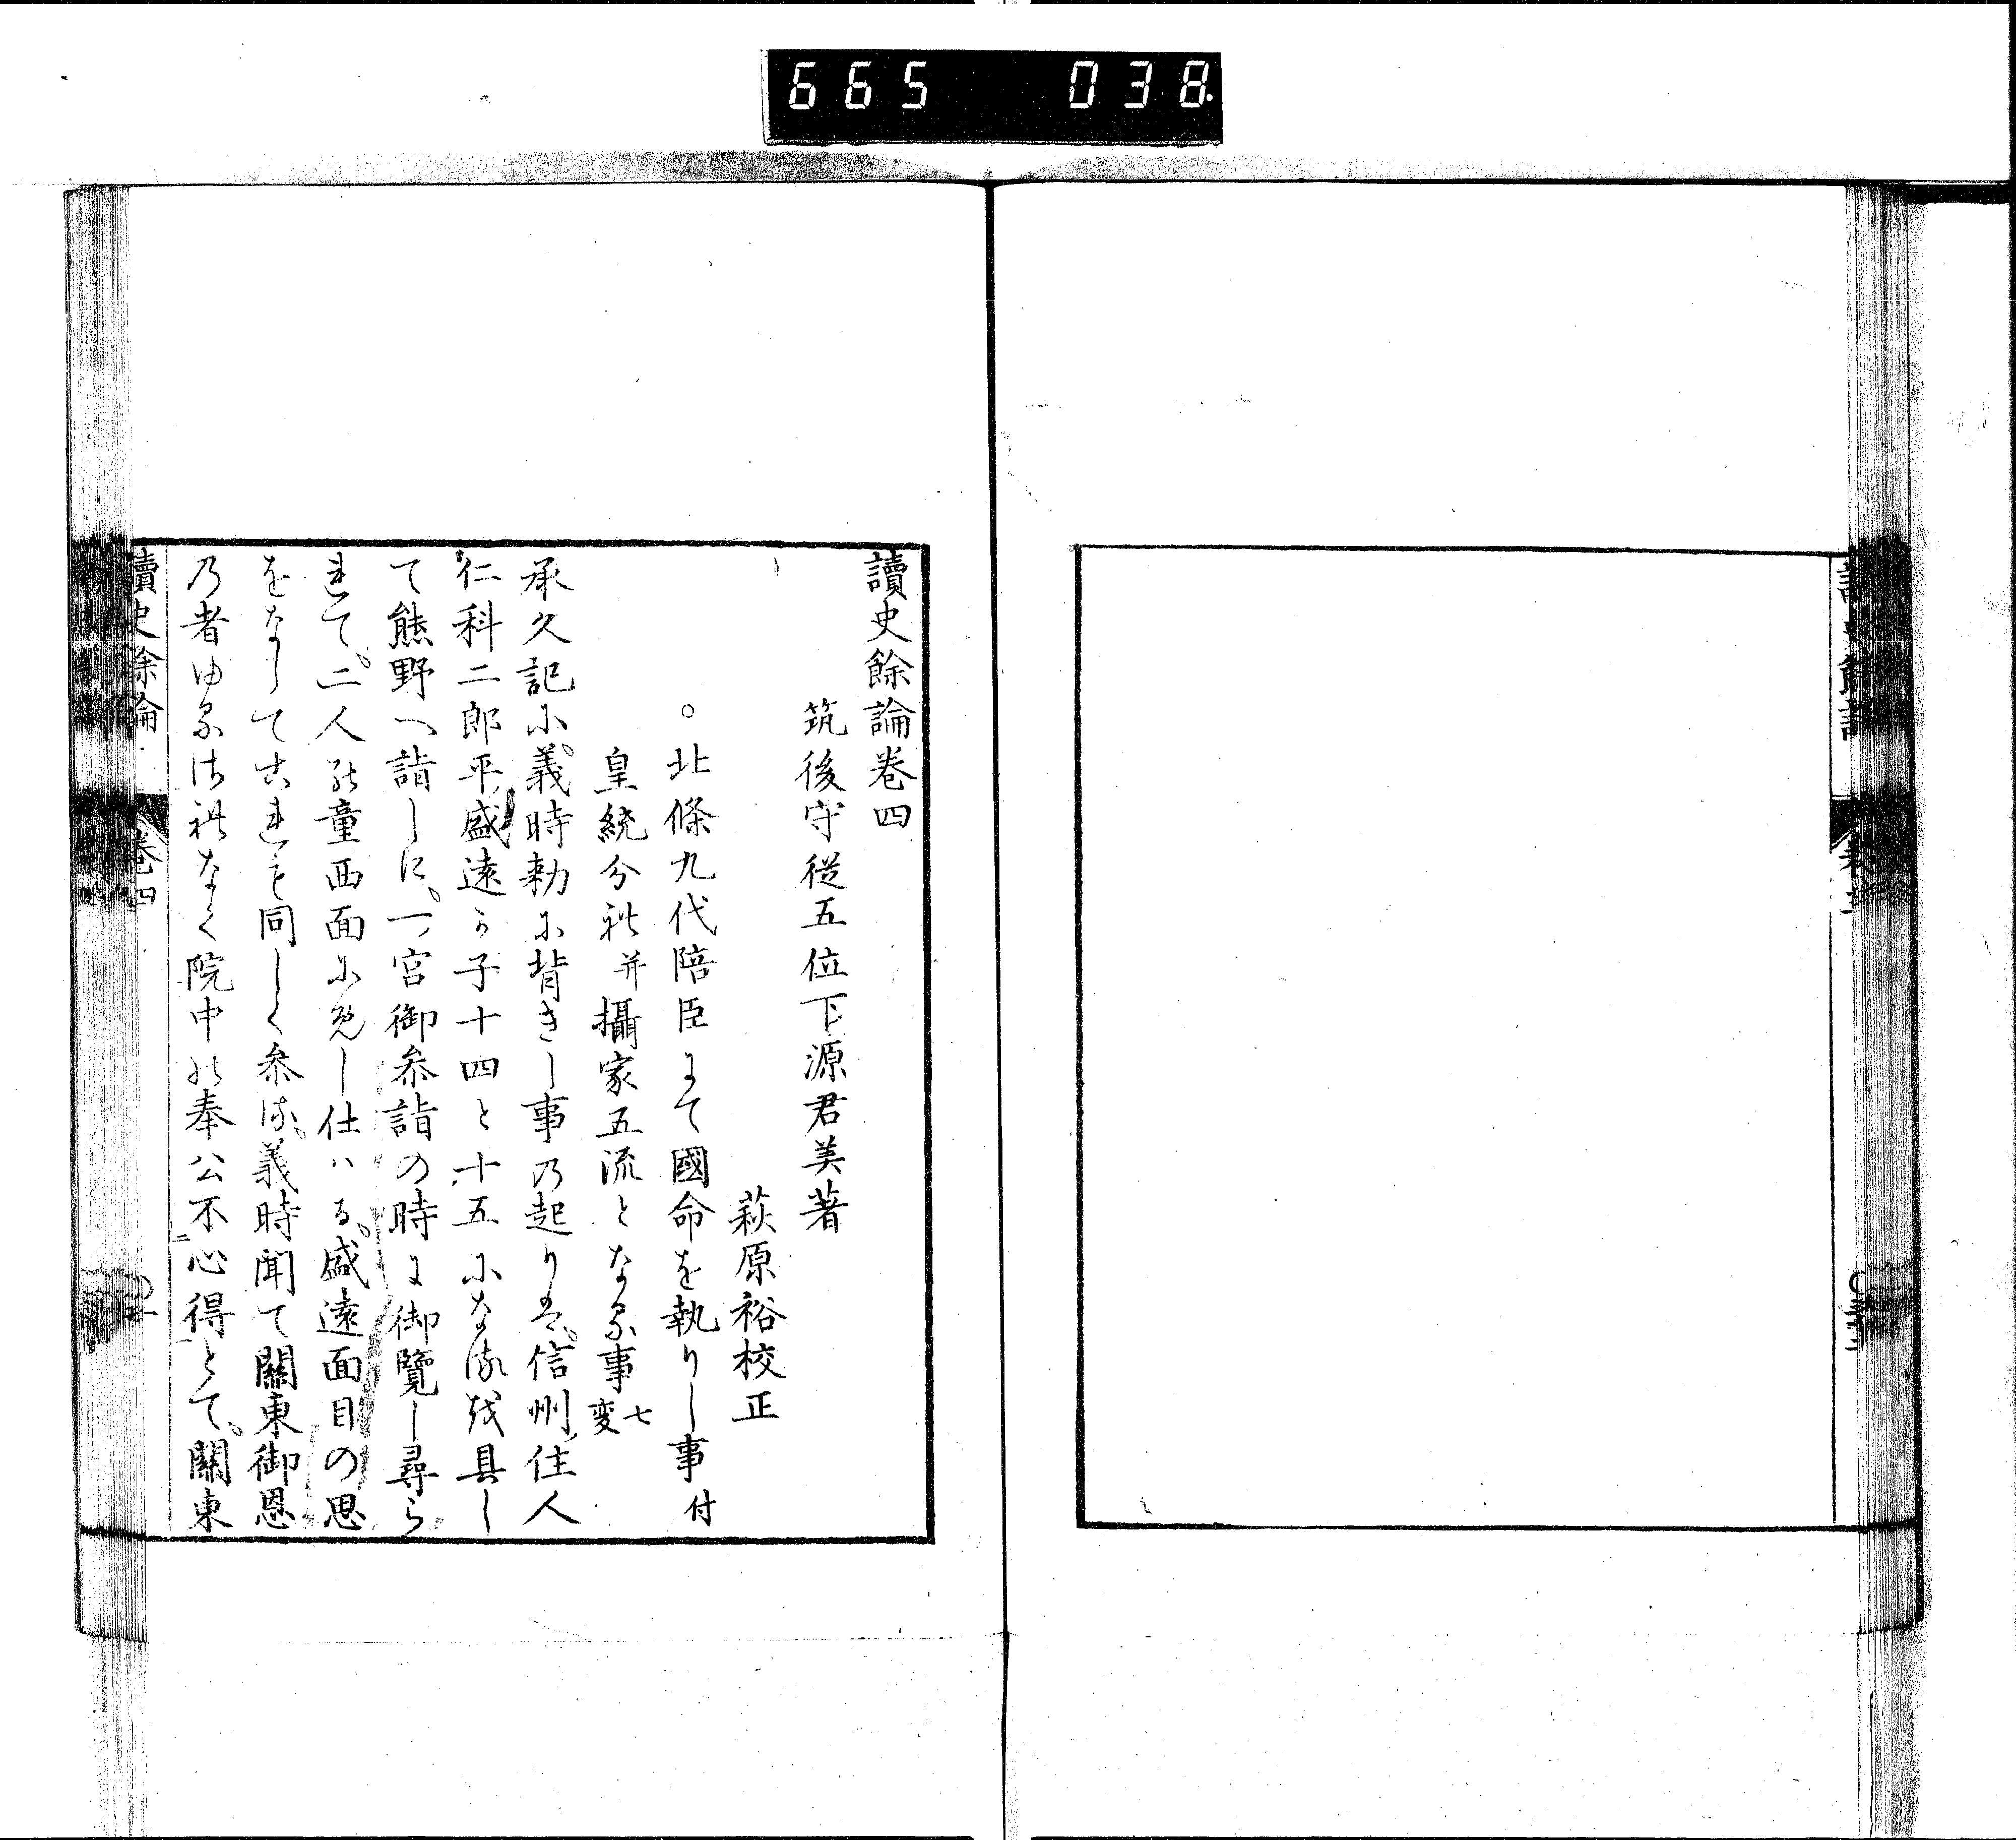 665 038
讀史餘論卷四
筑後守從五位下源君美著
萩原裕校正
○北條九代陪臣にて國命を執りし事付
皇統分れ并攝家五流となる事七変
承久記に。義時勅に背きし事の起りは。信州住人
仁科二郎平盛遠か子十四と十五になるを具し
て熊野へ詣しに。一宮御参詣の時に御覽し尋ら
れて。二人の童西面にめし仕はる。盛遠面目の思
をなしてこれも同しく参る。義時聞て關東御恩
の者ゆるされなく院中の奉公不心得二とて。關東
讀史餘論 卷四 ○一